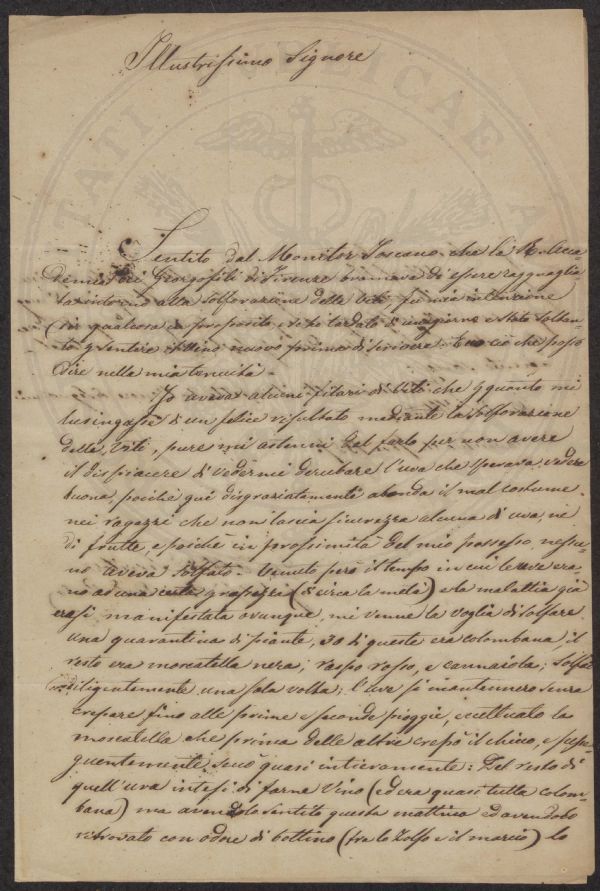 Illustrissimo Signore
Sentito dal Monitor Toscano che la R. Acca
demia dei Georgofili di Firenze bramava di essere ragguaglia
ta intorno alla Solforazione delle Viti fu mia intenzione
dir qualcosa in proposito, e se ho tardato è stato soltan
to p sentire il Vino nuovo prima di scrivere. Ecco ciò che posso
dire nella mia tenuità.
Io aveva alcuni filari di Viti che p quanto mi
lusingassi d'un felice risultato mediante la Solforazione
delle Viti, pure mi astenni dal farlo per non avere
il dispiacere di vedermi derubare l'uva che sperava vedere
buona, poiche quì disgraziatamente abonda il mal costume
nei ragazzi che non lascia sicurezza alcuna di uva, nè
di frutte, e poichè in prossimità del mio possesso, nessu
no aveva Solfato. Venuto però il tempo in cui le uve era
no ad una certa grossezza (di circa la metà) e la malattia già
erasi manifestata ovunque, mi venne la voglia di Solfare
una quarantina di piante, 30 di queste era colombana, il
resto era moscatella nera, raspo rosso, e cannaiola; Solfai
diligentemente una sola volta; l'uve si mantennero senza
crepare fino alle prime e seconde pioggie, eccettuato la
moscatella che prima delle altre crepò il chicco, e susse
guentemente seccò quasi intieramente: Del resto di
quell'uva intesi di farne Vino (ed era quasi tutta colom
bana) ma avendolo sentito questa mattina ed avendolo
ritrovato con odore di bottino (fra lo Zolfo e il marcio) lo